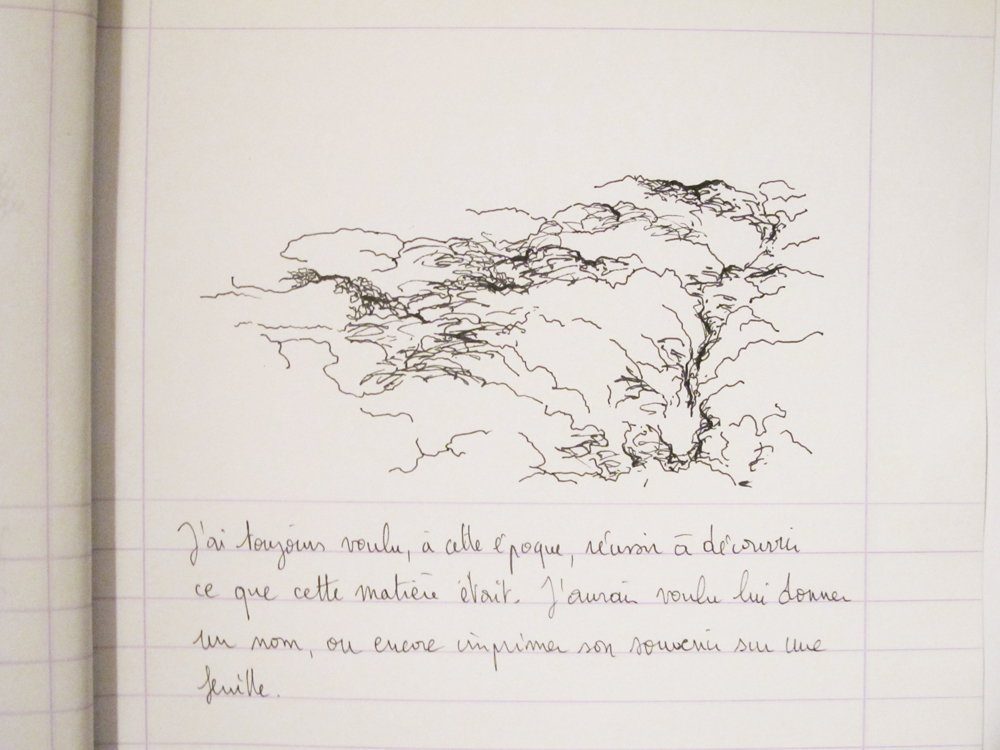 J'ai toujours voulu, à cette époque, réussir à découvrir
ce que cette matière était. J'aurais voulu lui donner
un nom, ou encore imprimer son souvenir sur une
feuille.